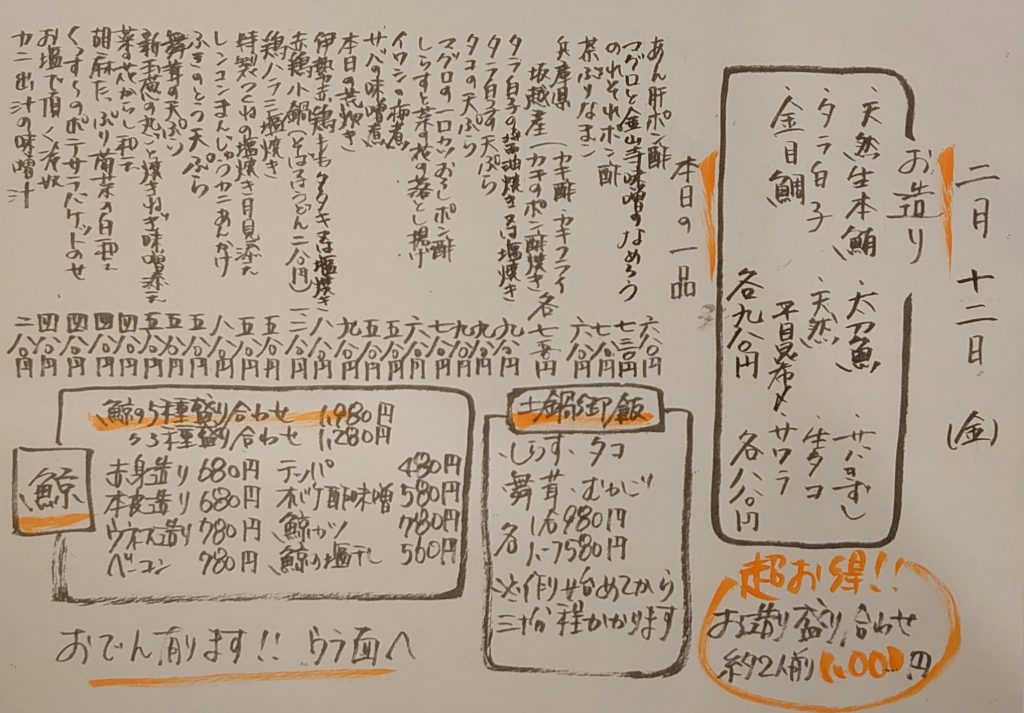 二月 十二日 (金)
お造り
・天然生本鮪 ・太刀魚 ・サバきずし
・タラ白子 ・天然平目昆布〆 ・生タコ
・金目鯛 ・サワラ
各九八〇円 各八八〇円
超お得!!
お造り盛り合わせ
約2人前 1,000円
本日の一品
あん肝ポン酢 六八〇円
マグロと金山寺味噌のなめろう 七三〇円
のれそれポン酢 七八〇円
茶ぶりなまこ 六八〇円
兵庫県
坂越産(カキ酢・カキフライ
カキのポン酢焼き 各七八〇円
タラ白子の醤油焼き又は塩焼き 九八〇円
タラ白子天ぷら 九八〇円
タコの天ぷら 九八〇円
マグロの一口カツおろしポン酢 七八〇円
しらすと菜の花の落とし揚げ 六八〇円
イワシの梅煮 五八〇円
サバの味噌煮 五八〇円
本日の荒炊き 九八〇円
伊勢赤鶏ももタタキ又は塩焼き 八八〇円
赤鶏小鍋(そば又はうどん二八〇円) 一二八〇円
鶏ハラミ塩焼き 五八〇円
特製つくねの塩焼き月見添え 五八〇円
レンコンまんじゅうカニあんかけ 八八〇円
ふきのとう天ぷら 五八〇円
舞茸の天ぷら 五八〇円
新玉葱の丸ごと焼きねぎ味噌添え 五八〇円
菜の花からし和え 四八〇円
胡麻たっぷり菊菜の白和え 四八〇円
くんすくのポテサラバケットのせ 四八〇円
お塩で頂く冷奴 四八〇円
カニ出汁の味噌汁 二八〇円
土鍋御飯
しらす、タコ
舞茸、むかご
各 1合 980円
1.5合 1580円
※作り始めてから
三十分程かかります
鯨
鯨の5種盛り合わせ 1,980円
〃3種盛り合わせ 1,280円
赤身造り 680円 テッパ 480円
本皮造り 680円 オバケ酢味噌 580円
ウネス造り 780円 鯨カツ 780円
ベーコン 780円 鯨の塩干し 560円
おでん有ります!! ウラ面へ